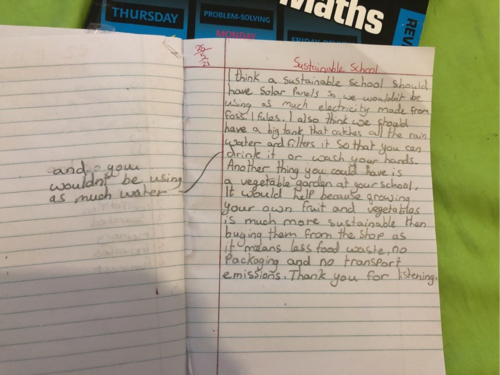 THURSDAY
PROBLEM-SOLVING
MONDAY
Maths
REV
Sustainable School
I think a sustainable School should
have Solar Panels so we wouldn't be
using as much electricity made from
foss.l fules. I also think we should
have a big tank that catches all the rain
water and filters it so that you can
drink it or wash your hands.
Another thing you could have is
a vegetable garden at your school.
It would help because growing
your own fruit and vegetables
is much more sustainable then
buying them from the shop as
it means less food waste, no
packaging and no transport
emissions. Thank you for listening.
and you
wouldn't be using
as much water